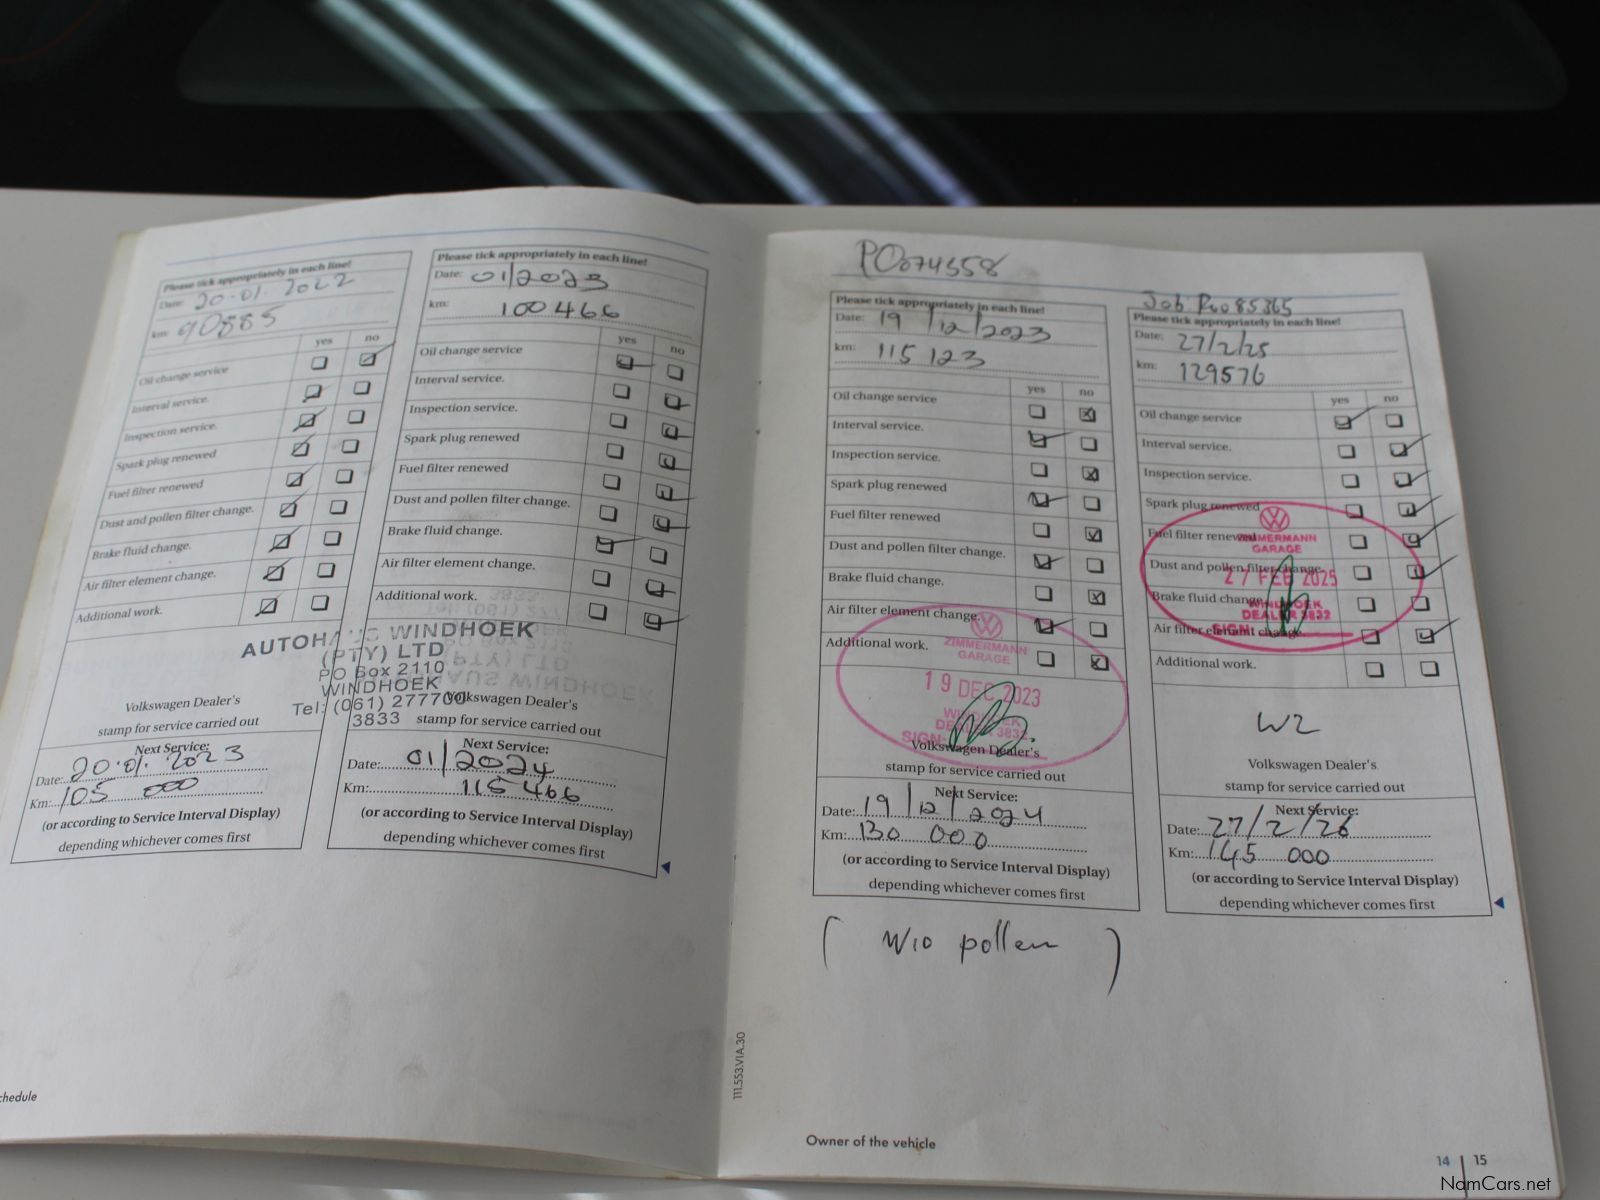 Please tick appropriately in each line!
Date: 20.01.2022
km: 90885
yes no
Oil change service
Interval service.
Inspection service.
Spark plug renewed
Fuel filter renewed
Dust and pollen filter change.
Brake fluid change.
Air filter element change.
Additional work.
AUTOHAUS WINDHOEK
(PTY) LTD
PO Box 2110
WINDHOEK
Tel: (061) 277700
3833
Volkswagen Dealer's
stamp for service carried out
Next Service:
Date: 20.01.2023
Km: 105 000
(or according to Service Interval Display)
depending whichever comes first
Please tick appropriately in each line!
Date: 01/2023
km: 100466
yes no
Oil change service
Interval service.
Inspection service.
Spark plug renewed
Fuel filter renewed
Dust and pollen filter change.
Brake fluid change.
Air filter element change.
Additional work.
Volkswagen Dealer's
stamp for service carried out
Next Service:
Date: 01/2024
Km: 115 466
(or according to Service Interval Display)
depending whichever comes first
chedule
111.553.VIA.30
PO074558
Please tick appropriately in each line!
Date: 19/12/2023
km: 115 123
yes no
Oil change service
Interval service.
Inspection service.
Spark plug renewed
Fuel filter renewed
Dust and pollen filter change.
Brake fluid change.
Air filter element change.
Additional work.
ZIMMERMANN
GARAGE
19 DEC 2023
WINDHOEK
DEALER 3832
SIGN:
Volkswagen Dealer's
stamp for service carried out
Next Service:
Date: 19/12/2024
Km: 130 000
(or according to Service Interval Display)
depending whichever comes first
( W10 pollen )
Job P0085365
Please tick appropriately in each line!
Date: 27/2/25
km: 129576
yes no
Oil change service
Interval service.
Inspection service.
Spark plug renewed
Fuel filter renewed
Dust and pollen filter change.
Brake fluid change.
Air filter element change.
Additional work.
ZIMMERMANN
GARAGE
27 FEB 2025
WINDHOEK
DEALER 3832
SIGN:
W2
Volkswagen Dealer's
stamp for service carried out
Next Service:
Date: 27/2/26
Km: 145 000
(or according to Service Interval Display)
depending whichever comes first
Owner of the vehicle
14 | 15
NamCars.net